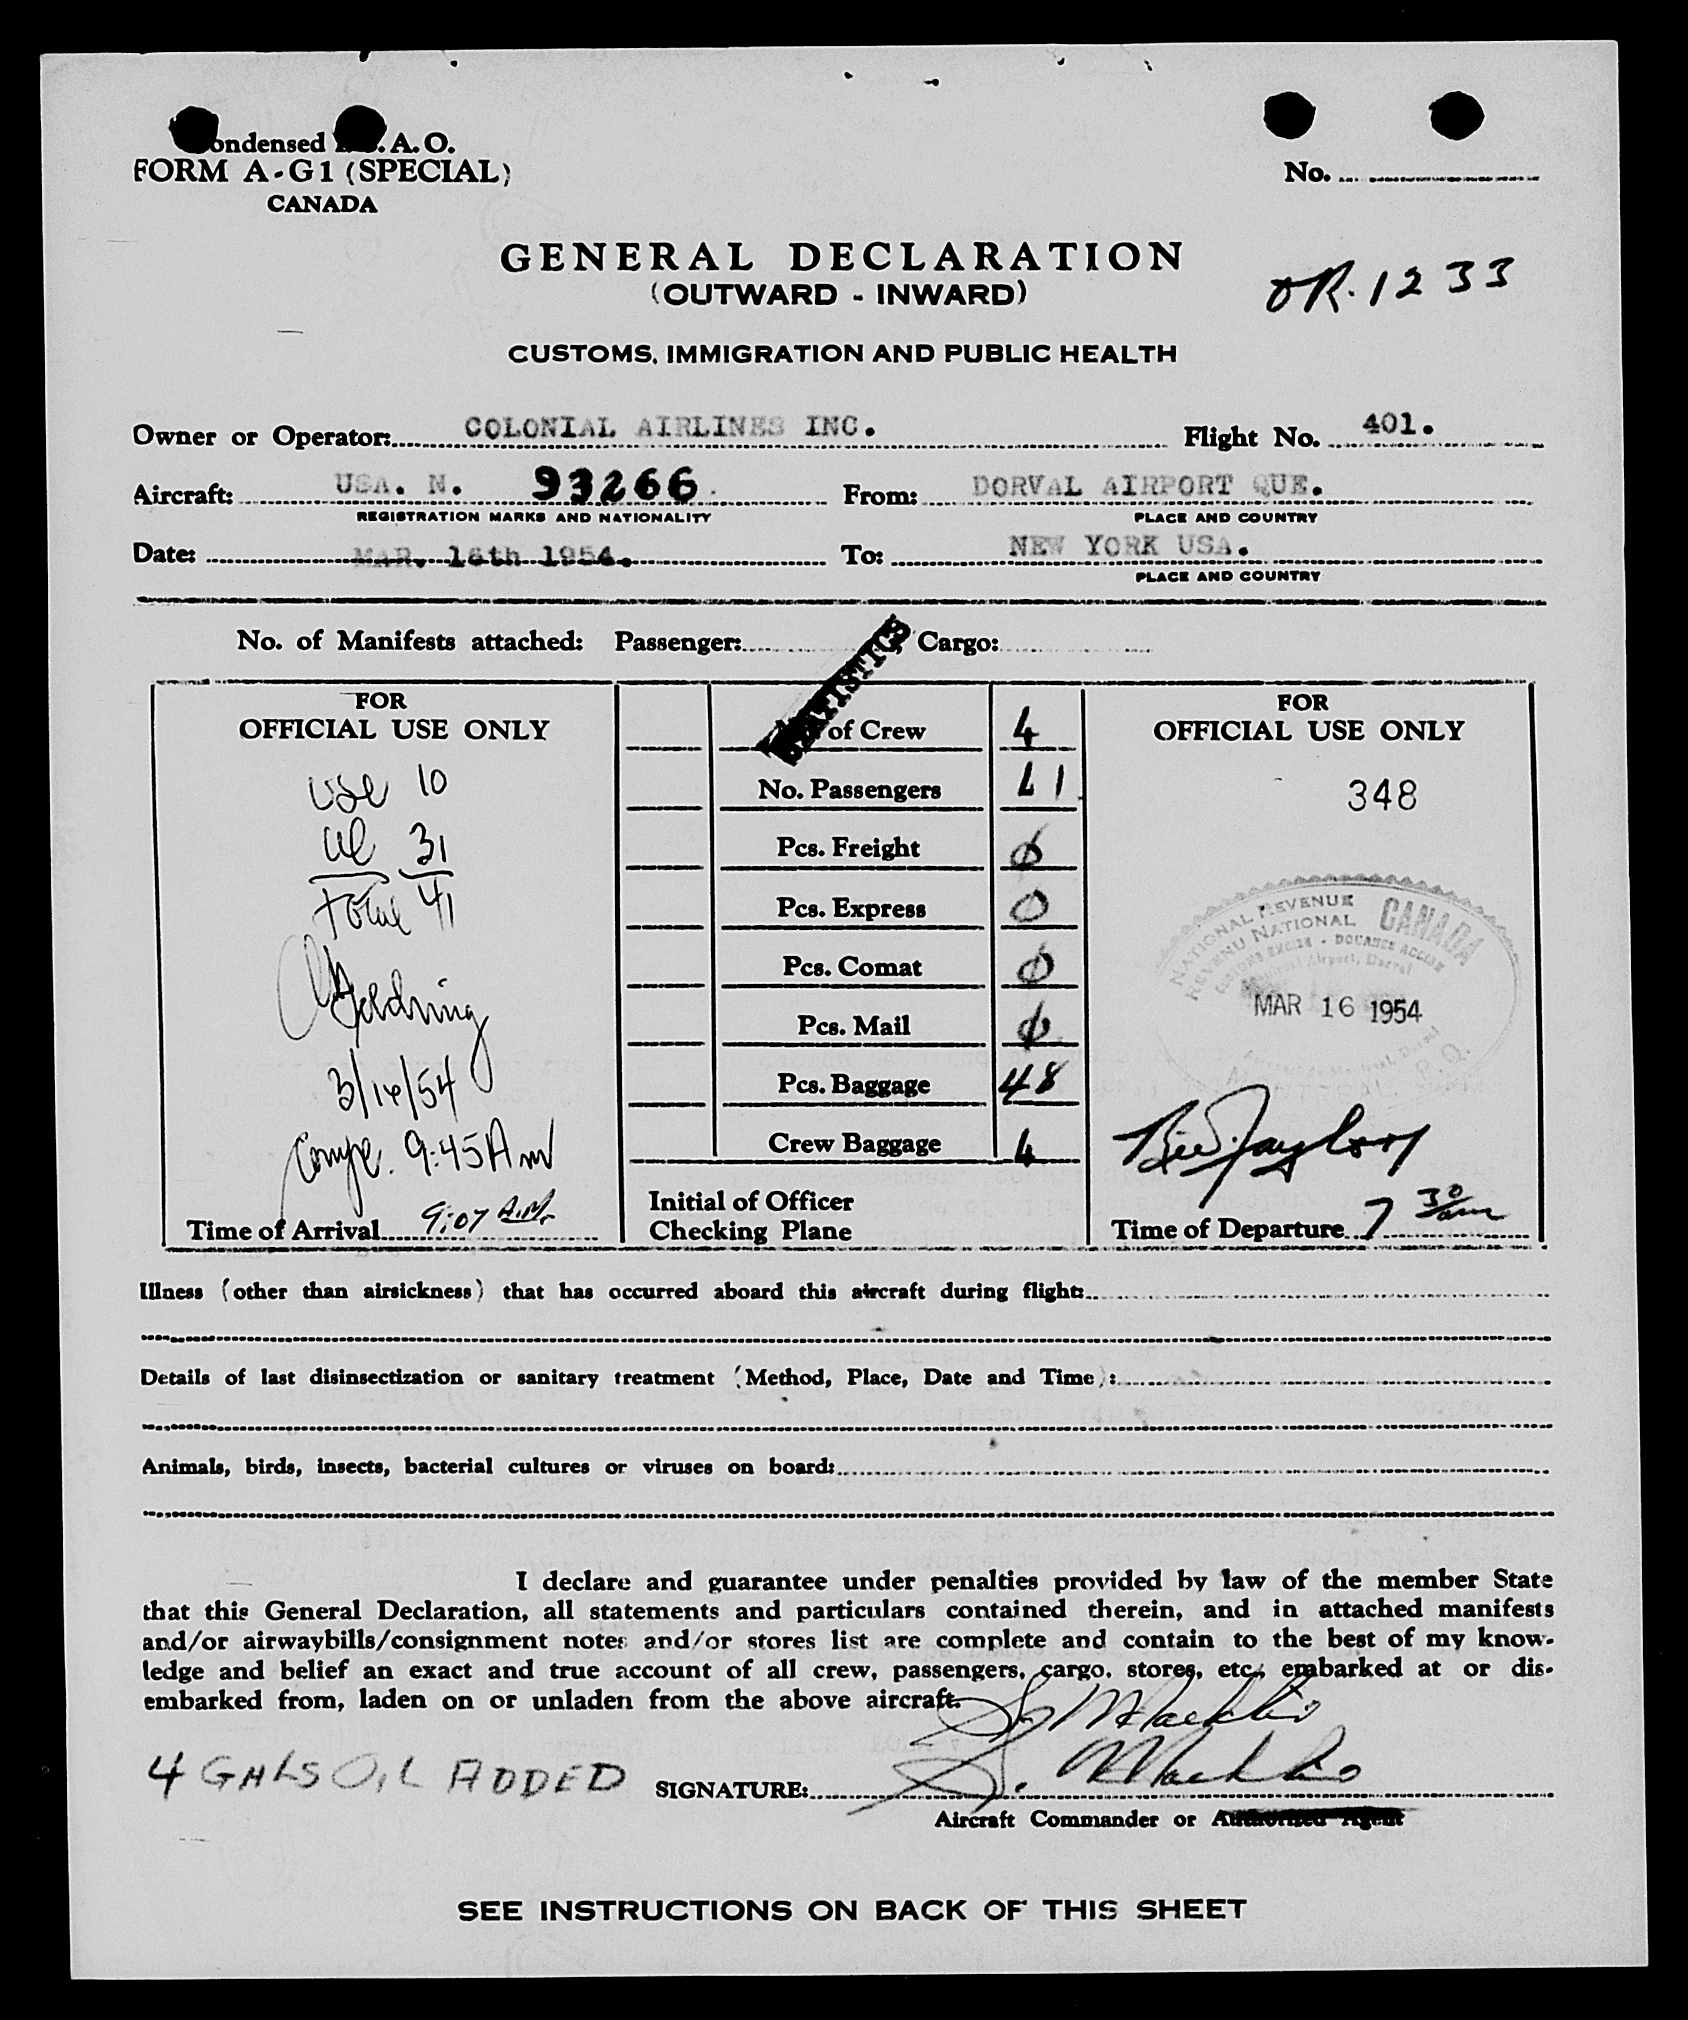 ondensed I.C.A.O.
FORM A-G1 (SPECIAL)
CANADA
No.
GENERAL DECLARATION
(OUTWARD - INWARD)
OR. 1233
CUSTOMS, IMMIGRATION AND PUBLIC HEALTH
Owner or Operator: COLONIAL AIRLINES INC. Flight No. 401.
Aircraft: USA. N. 93266 From: DORVAL AIRPORT QUE.
REGISTRATION MARKS AND NATIONALITY PLACE AND COUNTRY
Date: MAR. 16th 1954. To: NEW YORK USA.
PLACE AND COUNTRY
No. of Manifests attached: Passenger: Cargo:
STATISTICS
FOR
OFFICIAL USE ONLY
USC 10
31
Total 41
Goldring
3/16/54
Compl. 9:45 AM
Time of Arrival 9:07 A.M.
of Crew 4
No. Passengers 41
Pcs. Freight 0
Pcs. Express 0
Pcs. Comat 0
Pcs. Mail 0
Pcs. Baggage 48
Crew Baggage 4
Initial of Officer
Checking Plane
FOR
OFFICIAL USE ONLY
348
NATIONAL REVENUE
REVENU NATIONAL
CANADA
CUSTOMS EXCISE - DOUANES ACCISE
Airport, Dorval
MAR 16 1954
P.Q.
Bill Taylor
Time of Departure 7 30 am
Illness (other than airsickness) that has occurred aboard this aircraft during flight:
Details of last disinsectization or sanitary treatment (Method, Place, Date and Time):
Animals, birds, insects, bacterial cultures or viruses on board:
I declare and guarantee under penalties provided by law of the member State
that this General Declaration, all statements and particulars contained therein, and in attached manifests
and/or airwaybills/consignment notes and/or stores list are complete and contain to the best of my know-
ledge and belief an exact and true account of all crew, passengers, cargo, stores, etc., embarked at or dis-
embarked from, laden on or unladen from the above aircraft.
4 GALS OIL ADDED
SIGNATURE:
Aircraft Commander or Authorized Agent
SEE INSTRUCTIONS ON BACK OF THIS SHEET